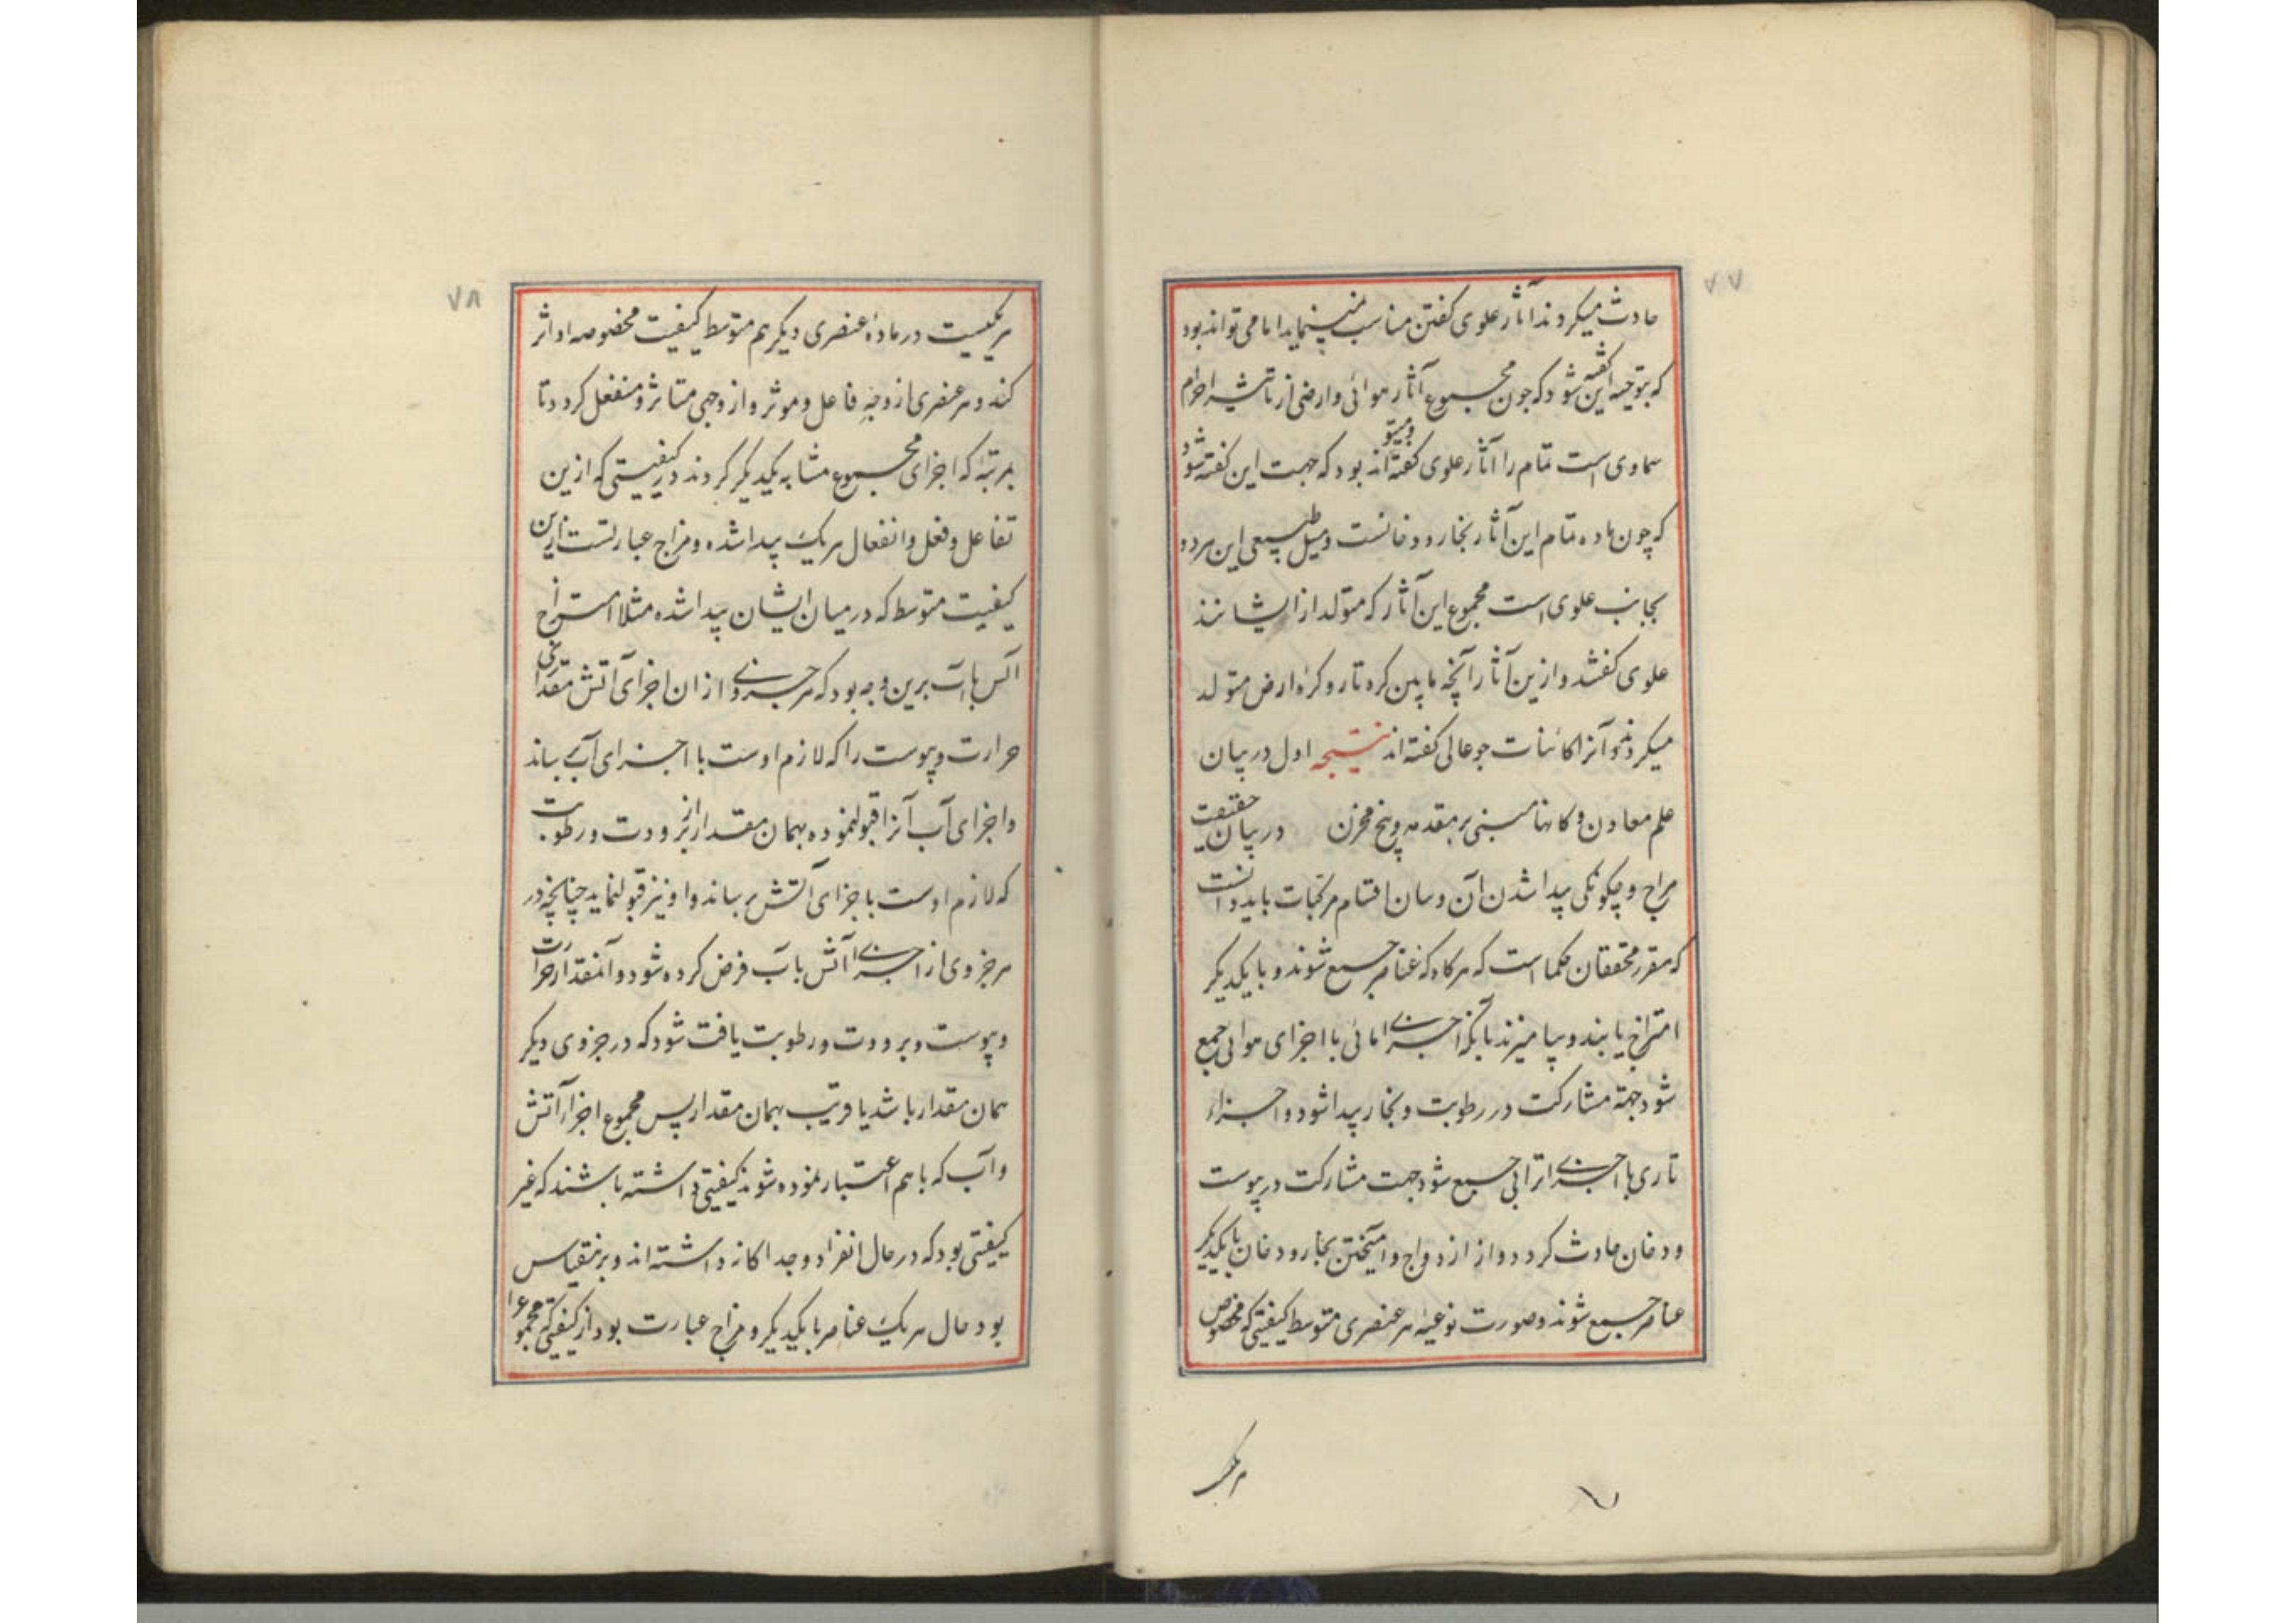 ۷۷
حادث میکردند آثار علوی کفتن مناسب نمینماید اما می تواند بود
که توجیه این کفته شود که چون مجموع آثار هوائی و ارضی از تاثیر اجرام
سماوی است تمام را آثار علوی کفته اند و میتو بود که جهت این کفته شود
که چون ماده تمام این آثار بخار و دخانست و میل طبیعی این هر دو
بجانب علوی است مجموع این آثار که متولد از ایشانند
علوی کفتند و از این آثار آنچه مابین کره نار و کرهٔ ارض متولد
میکردند و آنرا کائنات جو عالی کفته اند نتیجه اول در بیان
علم معادن و کانها مبنی بر مقدمه و پنج مخزن در بیان حقیقت
مزاج و چکونکی پیدا شدن آن و بیان اقسام مرکبات باید دانست
که مقرر محققان حکما است که هرکاه که عناصر جمع شوند و با یکدیکر
امتزاج یابند و بیامیزند بانکه اجزای مائی با اجزای هوائی جمع
شود جهة مشارکت در رطوبت و بخار پیدا شود و اجزاء
ناری با اجزای ترابی جمع شود جهت مشارکت در یبوست
و دخان حادث کردد و از ازدواج و امیختن بخار و دخان با یکدیکر
عناصر جمع شوند و صورت نوعیهٔ هر عنصری متوسط کیفیتی که مخصوص
هریکیست
۷۸
هریکیست در مادهٔ عنصری دیکر هم متوسط کیفیت مخصوصه او اثر
کند و هر عنصری از وجه فاعل و موثر و از وجهی متاثر و منفعل کردد تا
بمرتبهٔ که اجزای مجموع مشابه یکدیکر کردند در کیفیتی که از این
تفاعل و فعل و انفعال هر یک پیدا شده و مزاج عبارتست از این
کیفیت متوسط که در میان ایشان پیدا شده مثلا امتزاج
آتش باب برین وجه بود که هر جزوی از ان اجزای آتش مقداری
حرارت و یبوست را که لازم اوست با اجزای آبی رساند
و اجزای آب آنرا قبول نموده بهمان مقدار از برودت و رطوبت
که لازم اوست باجزای آتش برساند و او نیز قبول نماید چنانچه در
هر جزوی از اجزای آتش باب فرض کرده شود و آنمقدار حرارت
و یبوست و برودت و رطوبت یافت شود که در جزوی دیکر
همان مقدار باشد یا قریب بهمان مقدار پس مجموع اجزاء آتش
و آب که با هم اعتبار نموده شوند کیفیتی داشته باشند که غیر
کیفیتی بود که در حال انفراد و جداکانه داشته اند و برینقیاس
بود حال هر یک عناصر با یکدیکر و مزاج عبارت بود از کیفیتی که مجموع